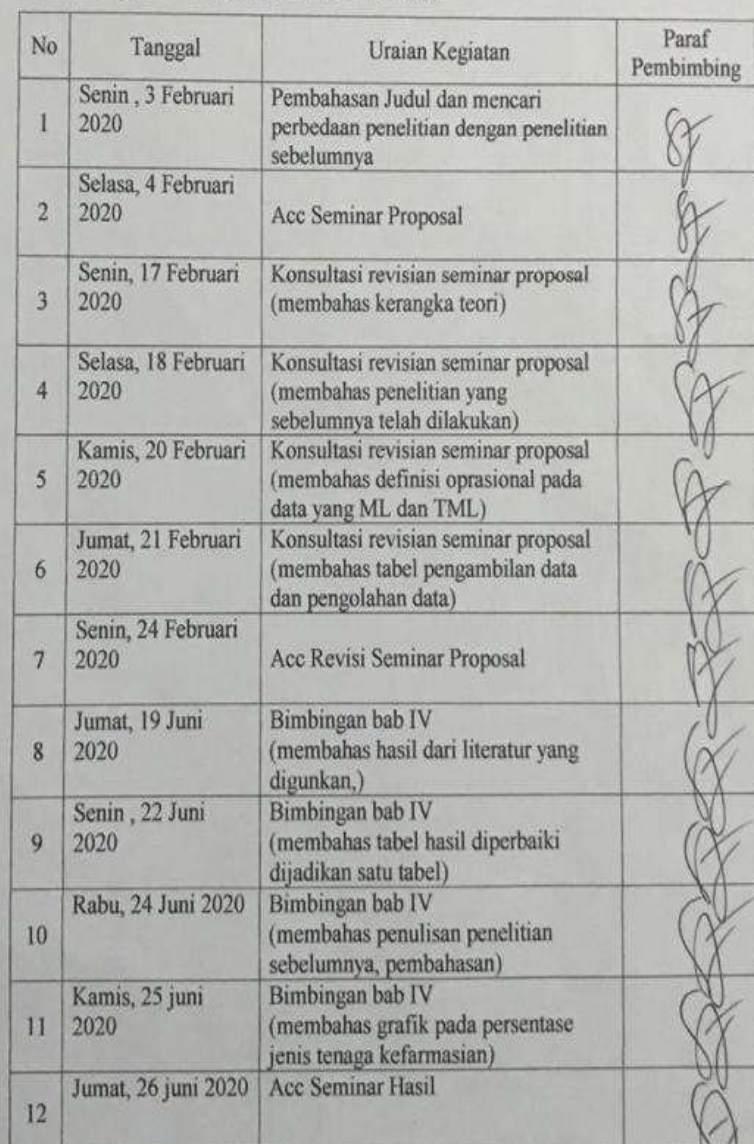 No Tanggal Uraian Kegiatan Paraf
Pembimbing
1 Senin , 3 Februari
2020
Pembahasan Judul dan mencari
perbedaan penelitian dengan penelitian
sebelumnya
2 Selasa, 4 Februari
2020
Acc Seminar Proposal
3 Senin, 17 Februari
2020
Konsultasi revisian seminar proposal
(membahas kerangka teori)
4 Selasa, 18 Februari
2020
Konsultasi revisian seminar proposal
(membahas penelitian yang
sebelumnya telah dilakukan)
5 Kamis, 20 Februari
2020
Konsultasi revisian seminar proposal
(membahas definisi oprasional pada
data yang ML dan TML)
6 Jumat, 21 Februari
2020
Konsultasi revisian seminar proposal
(membahas tabel pengambilan data
dan pengolahan data)
7 Senin, 24 Februari
2020
Acc Revisi Seminar Proposal
8 Jumat, 19 Juni
2020
Bimbingan bab IV
(membahas hasil dari literatur yang
digunkan,)
9 Senin , 22 Juni
2020
Bimbingan bab IV
(membahas tabel hasil diperbaiki
dijadikan satu tabel)
10 Rabu, 24 Juni 2020
Bimbingan bab IV
(membahas penulisan penelitian
sebelumnya, pembahasan)
11 Kamis, 25 juni
2020
Bimbingan bab IV
(membahas grafik pada persentase
jenis tenaga kefarmasian)
12 Jumat, 26 juni 2020
Acc Seminar Hasil